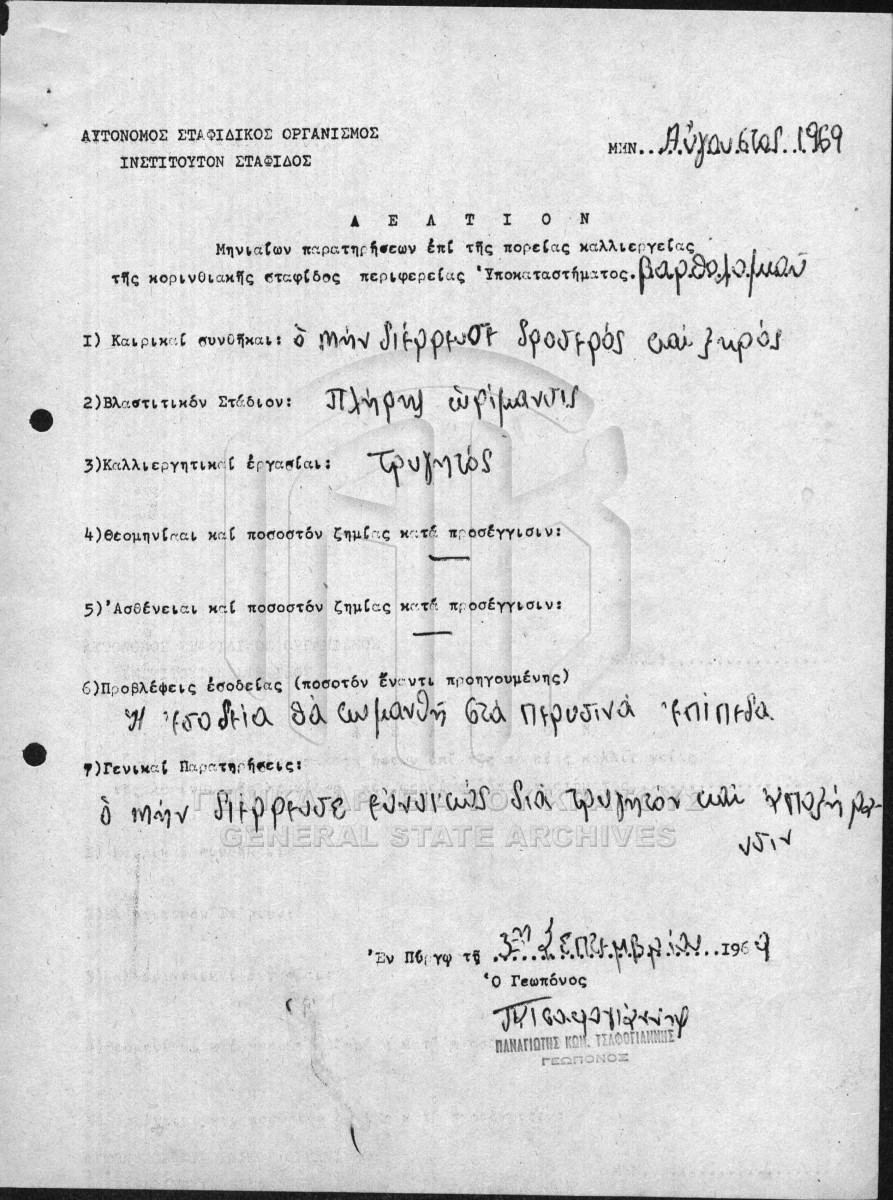 ΑΥΤΟΝΟΜΟΣ ΣΤΑΦΙΔΙΚΟΣ ΟΡΓΑΝΙΣΜΟΣ
ΙΝΣΤΙΤΟΥΤΟΝ ΣΤΑΦΙΔΟΣ
ΜΗΝ...Αὔγουστος 1969
Δ Ε Λ Τ Ι Ο Ν
Μηνιαίων παρατηρήσεων ἐπί τῆς πορείας καλλιεργείας
τῆς κορινθιακῆς σταφίδος περιφερείας Ὑποκαταστήματος.Βαρθολομιοῦ
1) Καιρικαί συνθῆκαι: ὁ μήν διέρρευσε δροσερός καί ξηρός
2)Βλαστιτικόν Στάδιον: Πλήρης ὡρίμανσις
3)Καλλιεργητικαί ἐργασίαι: Τρυγητός
4)Θεομηνίααι καί ποσοστόν ζημίας κατά προσέγγισιν:
—
5)Ἀσθένειαι καί ποσοστόν ζημίας κατά προσέγγισιν:
—
6)Προβλέψεις ἐσοδείας (ποσοτόν ἔναντι προηγουμένης)
Ἡ ἐσοδεία θά κυμανθῆ στά περυσινά ἐπίπεδα.
7)Γενικαί Παρατηρήσεις:
ὁ μήν διέρρευσε εὐνοικῶς διά τρυγητόν καί ἀποξήραν-
σιν
ΓΕΝΙΚΑ ΑΡΧΕΙΑ ΤΟΥ ΚΡΑΤΟΥΣ
GENERAL STATE ARCHIVES
Ἐν Πύργῳ τῇ 3ῃ Σεπτεμβρίου...1969
Ὁ Γεωπόνος
ΠΑΝΑΓΙΩΤΗΣ ΚΩΝ. ΤΣΑΦΟΓΙΑΝΝΗΣ
ΓΕΩΠΟΝΟΣ